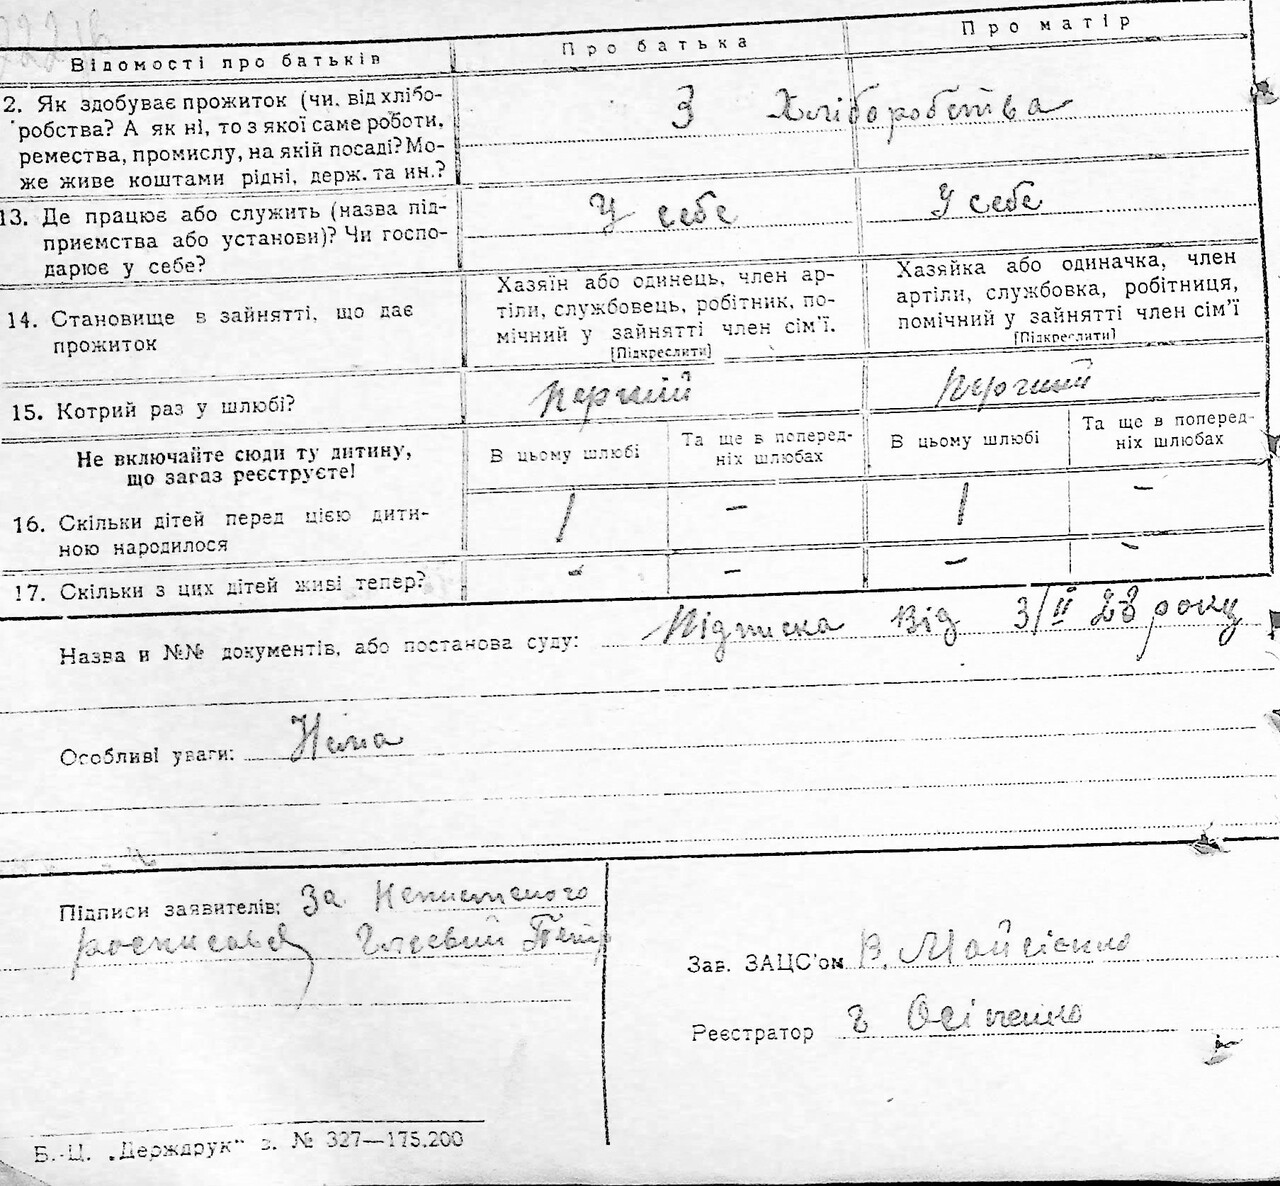 Відомості про батьків
Про батька
Про матір
2. Як здобуває прожиток (чи, від хлібо-
робства? А як ні, то з якої саме роботи,
ремества, промислу, на якій посаді? Мо-
же живе коштами рідні, держ. та ин.?
З Хліборобства
13. Де працює або служить (назва під-
приємства або установи)? Чи госпо-
дарює у себе?
У себе
У себе
14. Становище в зайнятті, що дає
прожиток
Хазяїн або одинець, член ар-
тіли, службовець, робітник, по-
мічний у зайнятті член сім'ї.
[Підкреслити]
Хазяйка або одиначка, член
артіли, службовка, робітниця,
помічний у зайнятті член сім'ї
[Підкреслити]
15. Котрий раз у шлюбі?
перший
перший
Не включайте сюди ту дитину,
що зараз реєструєте!
В цьому шлюбі
Та ще в поперед-
ніх шлюбах
В цьому шлюбі
Та ще в поперед-
ніх шлюбах
16. Скільки дітей перед цією дити-
ною народилося
1
-
1
-
17. Скільки з цих дітей живі тепер?
-
-
-
-
Назва и №№ документів, або постанова суду: Підписка від 3/II 28 року
Особливі уваги: Нема
Підписи заявителів: За Неписменого
росписався Петр
Зав. ЗАЦС'ом В. Мойсієнко
Реєстратор Осіпенко
Б.-Ц. „Держдрук" з. № 327—175.200